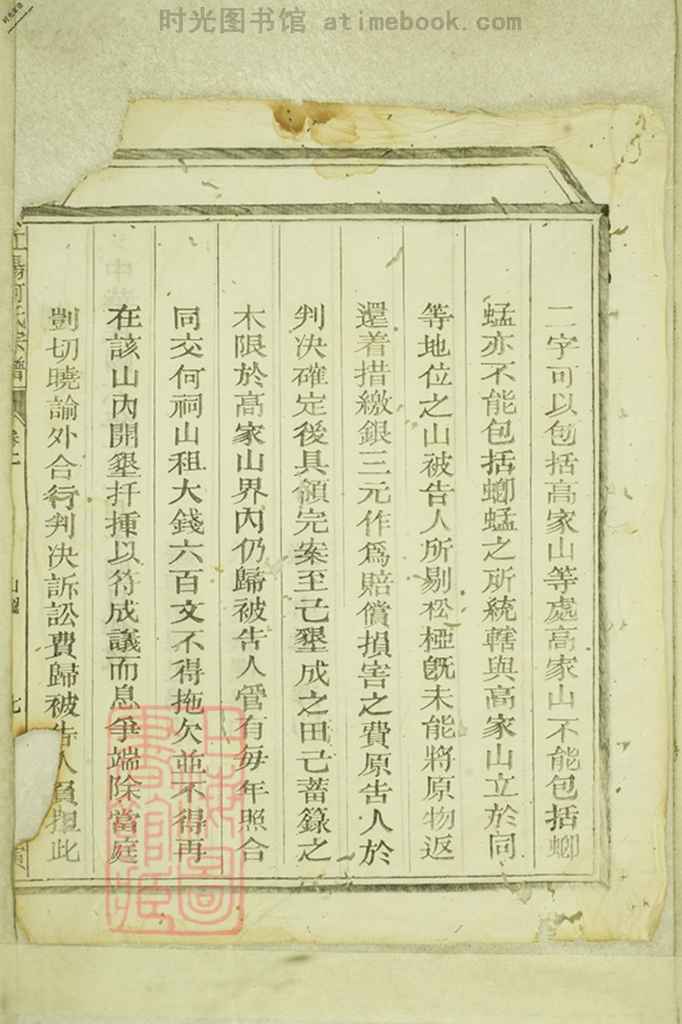 时光图书馆 atimebook.com
二字可以包括高家山等處高家山不能包括螂
蜢亦不能包括螂蜢之所統轄與高家山立於同
等地位之山被告人所剔松椏旣未能將原物返
還着措繳銀三元作爲賠償損害之費原告人於
判决確定後具領完案至已墾成之田己蓄籙之
木限於高家山界內仍歸被告人管有每年照合
同交何祠山租大錢六百文不得拖欠並不得再
在該山內開墾扦揷以符成議而息爭端除當庭
剴切曉諭外合行判决訴訟費歸被告人負担此
氏宗譜
卷二
山
七